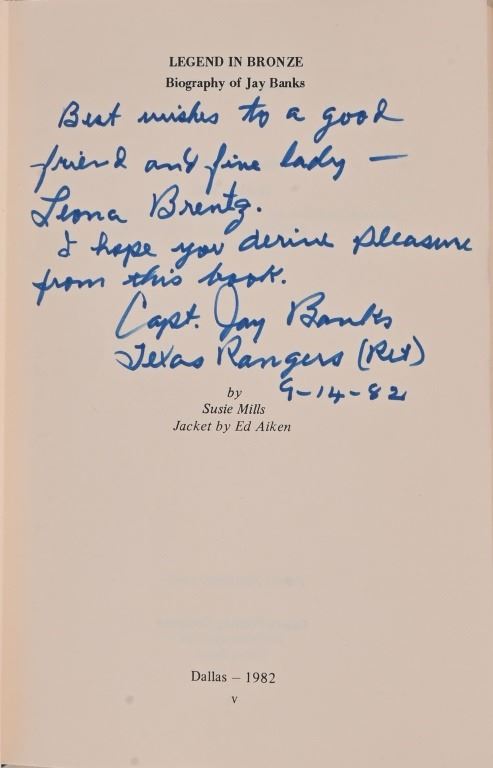 LEGEND IN BRONZE
Biography of Jay Banks
Best wishes to a good
friend and fine lady —
Leona Brentz.
I hope you derive pleasure
from this book.
Capt. Jay Banks
Texas Rangers (Ret)
9-14-82
by
Susie Mills
Jacket by Ed Aiken
Dallas – 1982
v